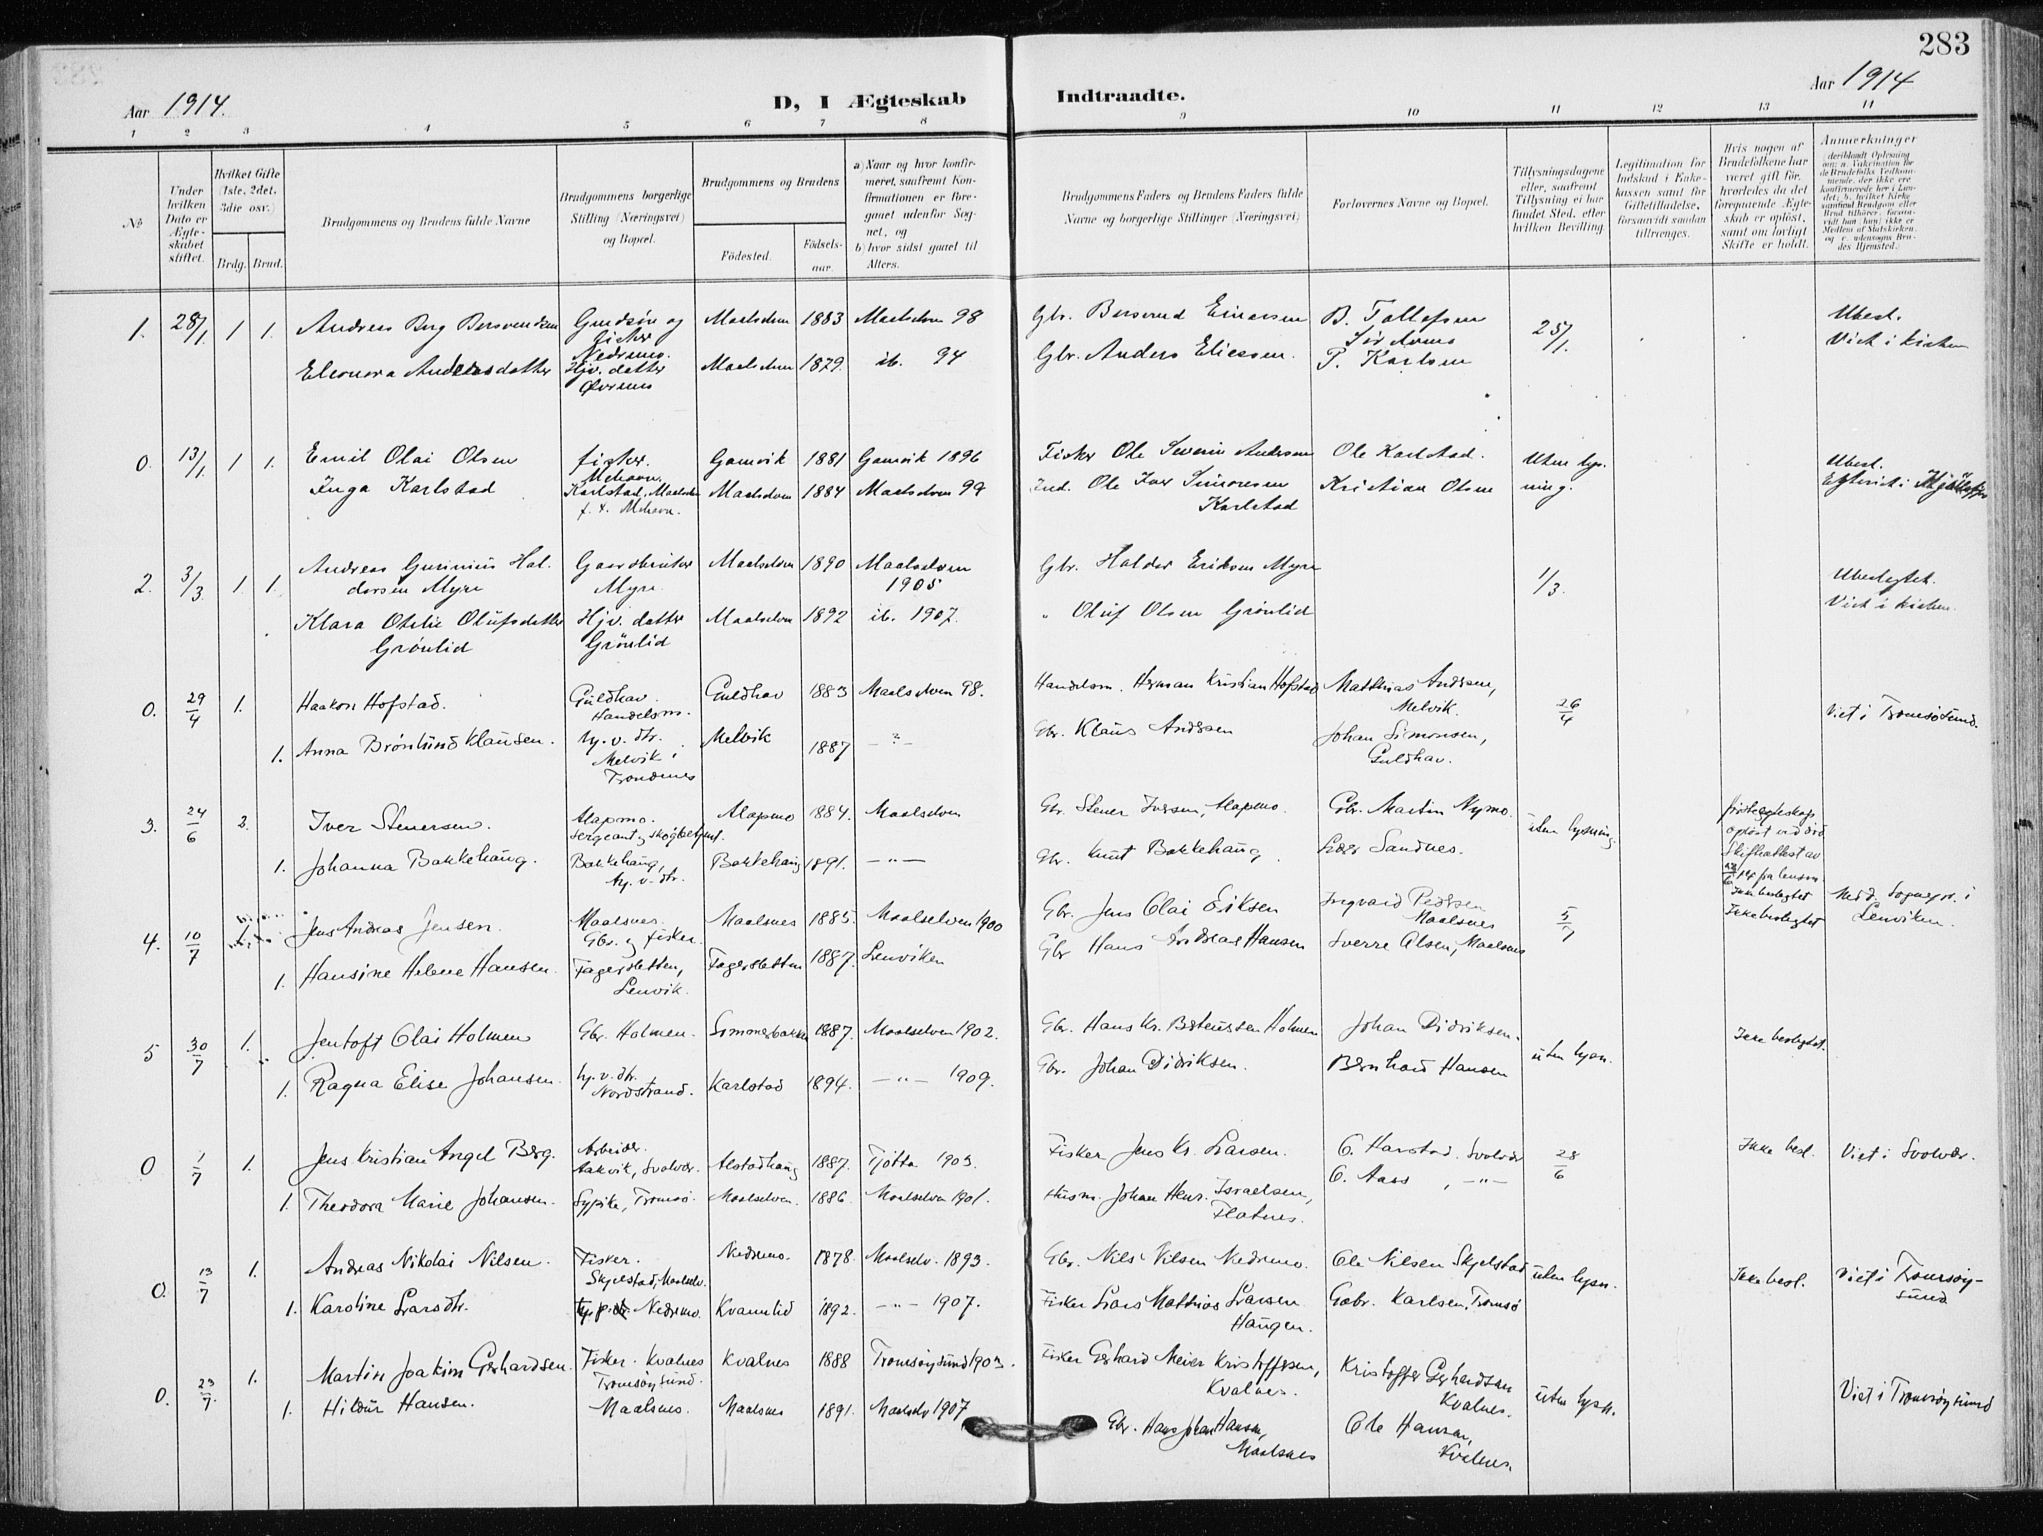 283
Aar 1914.
D, I Ægteskab Indtraadte.
Aar 1914
1 2 3 4 5 6 7 8 9 10 11 12 13 14
No
Under hvilken Dato er Ægteskabet stiftet.
Hvilket Gifte (1ste, 2det, 3die osv.)
Brdg. Brud.
Brudgommens og Brudens fulde Navne
Brudgommens borgerlige Stilling (Næringsvei) og Bopæl.
Brudgommens og Brudens
Födested. Födselsaar.
a) Naar og hvor konfirmeret, saafremt Konfirmationen er foregaaet udenfor Sognet, og b) hvor sidst gaaet til Alters.
Brudgommens Faders og Brudens Faders fulde Navne og borgerlige Stillinger (Næringsvei)
Forlovernes Navne og Bopæl.
Tillysningsdagene eller, saafremt Tillysning ei har fundet Sted, efter hvilken Bevilling.
Legitimation for Indskud i Enkekassen samt for Giftetilladelse, forsaavidt saadan tiltrænges.
Hvis nogen af Brudefolkene har været gift før, hvorledes da det foregaaende Ægteskab er oplöst, samt om lovligt Skifte er holdt.
Anmerkninger
1. 28/1 1 1. Andreas Berg Bersvendsen Maalselven 1883 Maalselven 98 Gbr. Einarsen B. Tollefsen 25/1. Ubesl.
Nedremo. Viet i kirken
Eleonora Andersdatter Hjv. datter Øvremo Maalselven 1879. ib. 94 Gbr. Anders Ericssen. P. Karlsen
0. 13/1 1 1. Emil Olai Olsen fisker. Mehavn. Gamvik 1881 Gamvik 1896 Fisker Ole Severin Andersen Ole Karlstad. Uten lysning. Ubesl.
Inga Karlstad Karlstad, Maalselven Maalselven 1884 Maalselven 99 Ind. Ole Iver Simonsen Karlstad Kristian Olsen
f. t. Mehavn.
2. 3/3 1. 1. Andreas Gurinius Haldorsen Myre Gaardbruker Myre. Maalselven 1890 Maalselven 1905 Gbr. Haldor Eriksen Myre 1/3. Ubeslegtet.
Viet i kirken.
Klara Otelie Olufsdatter Grönlid Hjv. datter Grönlid Maalselven 1892 ib. 1907. " Oluf Olsen Grönlid
0. 29/4 1. Haakon Hofstad. Guldhav. Handelsm. Guldhav 1883 Maalselven 98. Handelsm. Herman Kristian Hofstad Matthias Andersen, Melvik. 26/4 Viet i Tromsösund.
1. Anna Brønlund Klausen. hj. v. dtr. Melvik i Trondenes Melvik 1887 - ? - Gbr. Klaus Andersen Johan Simonsen, Guldhav.
3. 24/6 2. Iver Stenersen. Alapmo. Sergeant og skogbetjent. Alapmo 1884. Maalselven Gbr. Stener Iversen, Alapmo. Gbr. Martin Nymo. uten lysning
1. Johanna Bakkehaug. Bakkehaug, hj. v. dtr. Bakkehaug 1891. - " - Gbr. Knut Bakkehaug. Peder Sandnes. Ikke beslegtet
4. 10/7 Jens Andreas Jensen. Maalsnes. Gbr. og fisker. Maalsnes 1885. Maalselven 1900 Gbr. Jens Olai Eriksen Ingvard Pedersen Maalsnes 5/7 Ikke beslegtet Med d. Sognepr. i Lenviken.
1. Hansine Helene Hansen. Fagersletten, Lenvik. Fagersletten 1887. Lenviken Gbr Hans Andreas Hansen Sverre Olsen, Maalsnes
5 30/7 1. Jentoft Olai Holmen Gbr. Holmen. Sommerbakken 1887. Maalselven 1902. Gbr. Hans Kr. Holmen Johan Didriksen. uten lysn. Ikke beslegtet.
1. Ragna Elise Johansen. hj. v. dtr. Nordstrand. Karlstad 1894. - " - 1909. Gbr. Johan Didriksen. Bernhard Hansen
0 1/7 1. Jens Kristian Angel Berg. Arbeider. Aakvik, Svolvær. Alstadhaug 1887. Tjötta 1903. Fisker Jens Kr. Larsen. O. Harstad, Svolvær 28/6 Ikke besl. Viet i Svolvær.
1. Theodora Marie Johansen. Sypike, Tromsö. Maalselven. 1886. Maalselven 1901. Husm. Johan Henr. Israelsen, Flatnes. O. Aass, - " -
0. 13/7 1. Andreas Nikolai Nilsen. Fisker. Skjelstad, Maalselv. Nedremo. 1878. Maalselv. 1893. Gbr. Nils Nilsen Nedremo. Ole Nilsen Skjelstad uten lysn. Ikke besl. Viet i Tromsöysund
1. Karoline Larsdtr. Nedremo. Kvannlid 1892. - " - 1907. Fisker Lars Mathias Larsen Haugen. Gabr. Karlsen, Tromsö
0. 23/7. 1. Martin Joakim Gerhardsen. Fisker. Kvalnes Tromsöysund. Kvalnes 1888 Tromsöysund 1903. Fisker Gerhard Meier Kristoffersen, Kvalnes. Kristoffer Gerhardsen Kvalnes. uten lysn. Viet i Tromsöysund
1. Hildur Hansen. Maalsnes. Maalsnes 1891. Maalselv 1907 Gbr. Hans Johan Hansen, Maalsnes Ole Hansen, Kvalnes.